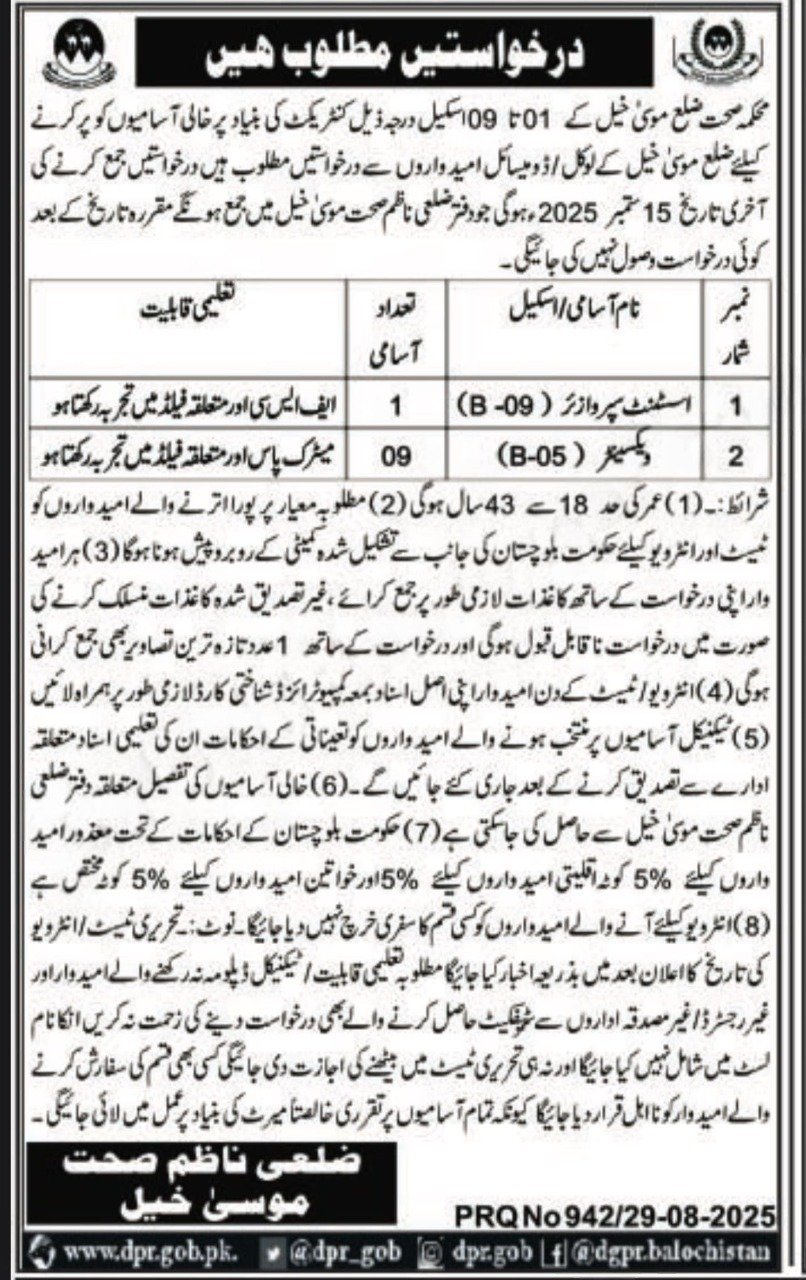 درخواستیں مطلوب ھیں
محکمہ صحت ضلع موسیٰ خیل کے 01 تا 09 اسکیل درجہ ذیل کنٹریکٹ کی بنیاد پر خالی آسامیوں کو پر کرنے
کیلئے ضلع موسیٰ خیل کے لوکل/ڈومیسائل امیدواروں سے درخواستیں مطلوب ہیں درخواستیں جمع کرنے کی
آخری تاریخ 15 ستمبر 2025ء ہوگی جو دفتر ضلعی ناظم صحت موسیٰ خیل میں جمع ہونگے مقررہ تاریخ کے بعد
کوئی درخواست وصول نہیں کی جائیگی۔
نمبر شمار نام آسامی/اسکیل تعداد آسامی تعلیمی قابلیت
1 اسسٹنٹ سپروائزر (B-09) 1 ایف ایس سی اور متعلقہ فیلڈ میں تجربہ رکھتا ہو
2 ویکسینیٹر (B-05) 09 میٹرک پاس اور متعلقہ فیلڈ میں تجربہ رکھتا ہو
شرائط:۔(1) عمر کی حد 18 سے 43 سال ہوگی (2) مطلوبہ معیار پر پورا اترنے والے امیدواروں کو
ٹیسٹ اور انٹرویو کیلئے حکومت بلوچستان کی جانب سے تشکیل شدہ کمیٹی کے روبرو پیش ہونا ہوگا (3) ہر امید
وار اپنی درخواست کے ساتھ کاغذات لازمی طور پر جمع کرائے، غیر تصدیق شدہ کاغذات منسلک کرنے کی
صورت میں درخواست ناقابل قبول ہوگی اور درخواست کے ساتھ 1 عدد تازہ ترین تصاویر بھی جمع کرانی
ہوگی (4) انٹرویو/ٹیسٹ کے دن امیدوار اپنی اصل اسناد بمعہ کمپیوٹرائزڈ شناختی کارڈ لازمی طور پر ہمراہ لائیں
(5) ٹیکنیکل آسامیوں پر منتخب ہونے والے امیدواروں کو تعیناتی کے احکامات ان کی تعلیمی اسناد متعلقہ
ادارے سے تصدیق کرنے کے بعد جاری کئے جائیں گے۔(6) خالی آسامیوں کی تفصیل متعلقہ دفتر ضلعی
ناظم صحت موسیٰ خیل سے حاصل کی جاسکتی ہے (7) حکومت بلوچستان کے احکامات کے تحت معذور امید
واروں کیلئے 5% کوٹہ اقلیتی امیدواروں کیلئے 5% اور خواتین امیدواروں کیلئے 5% کوٹہ مختص ہے
(8) انٹرویو کیلئے آنے والے امیدواروں کو کسی قسم کا سفری خرچ نہیں دیا جائیگا۔ نوٹ:۔ تحریری ٹیسٹ/انٹرویو
کی تاریخ کا اعلان بعد میں بذریعہ اخبار کیا جائیگا مطلوبہ تعلیمی قابلیت/ٹیکنیکل ڈپلومہ نہ رکھنے والے امیدوار اور
غیر رجسٹرڈ/غیر مصدقہ اداروں سے سرٹیفکیٹ حاصل کرنے والے بھی درخواست دینے کی زحمت نہ کریں انکا نام
لسٹ میں شامل نہیں کیا جائیگا اور نہ ہی تحریری ٹیسٹ میں بیٹھنے کی اجازت دی جائیگی کسی بھی قسم کی سفارش کرنے
والے امیدوار کو نا اہل قرار دیا جائیگا کیونکہ تمام آسامیوں پر تقرری خالصتاً میرٹ کی بنیاد پر عمل میں لائی جائیگی۔
ضلعی ناظم صحت
موسیٰ خیل
PRQ No 942/29-08-2025
www.dpr.gob.pk. @dpr_gob dpr.gob @dgpr.balochistan